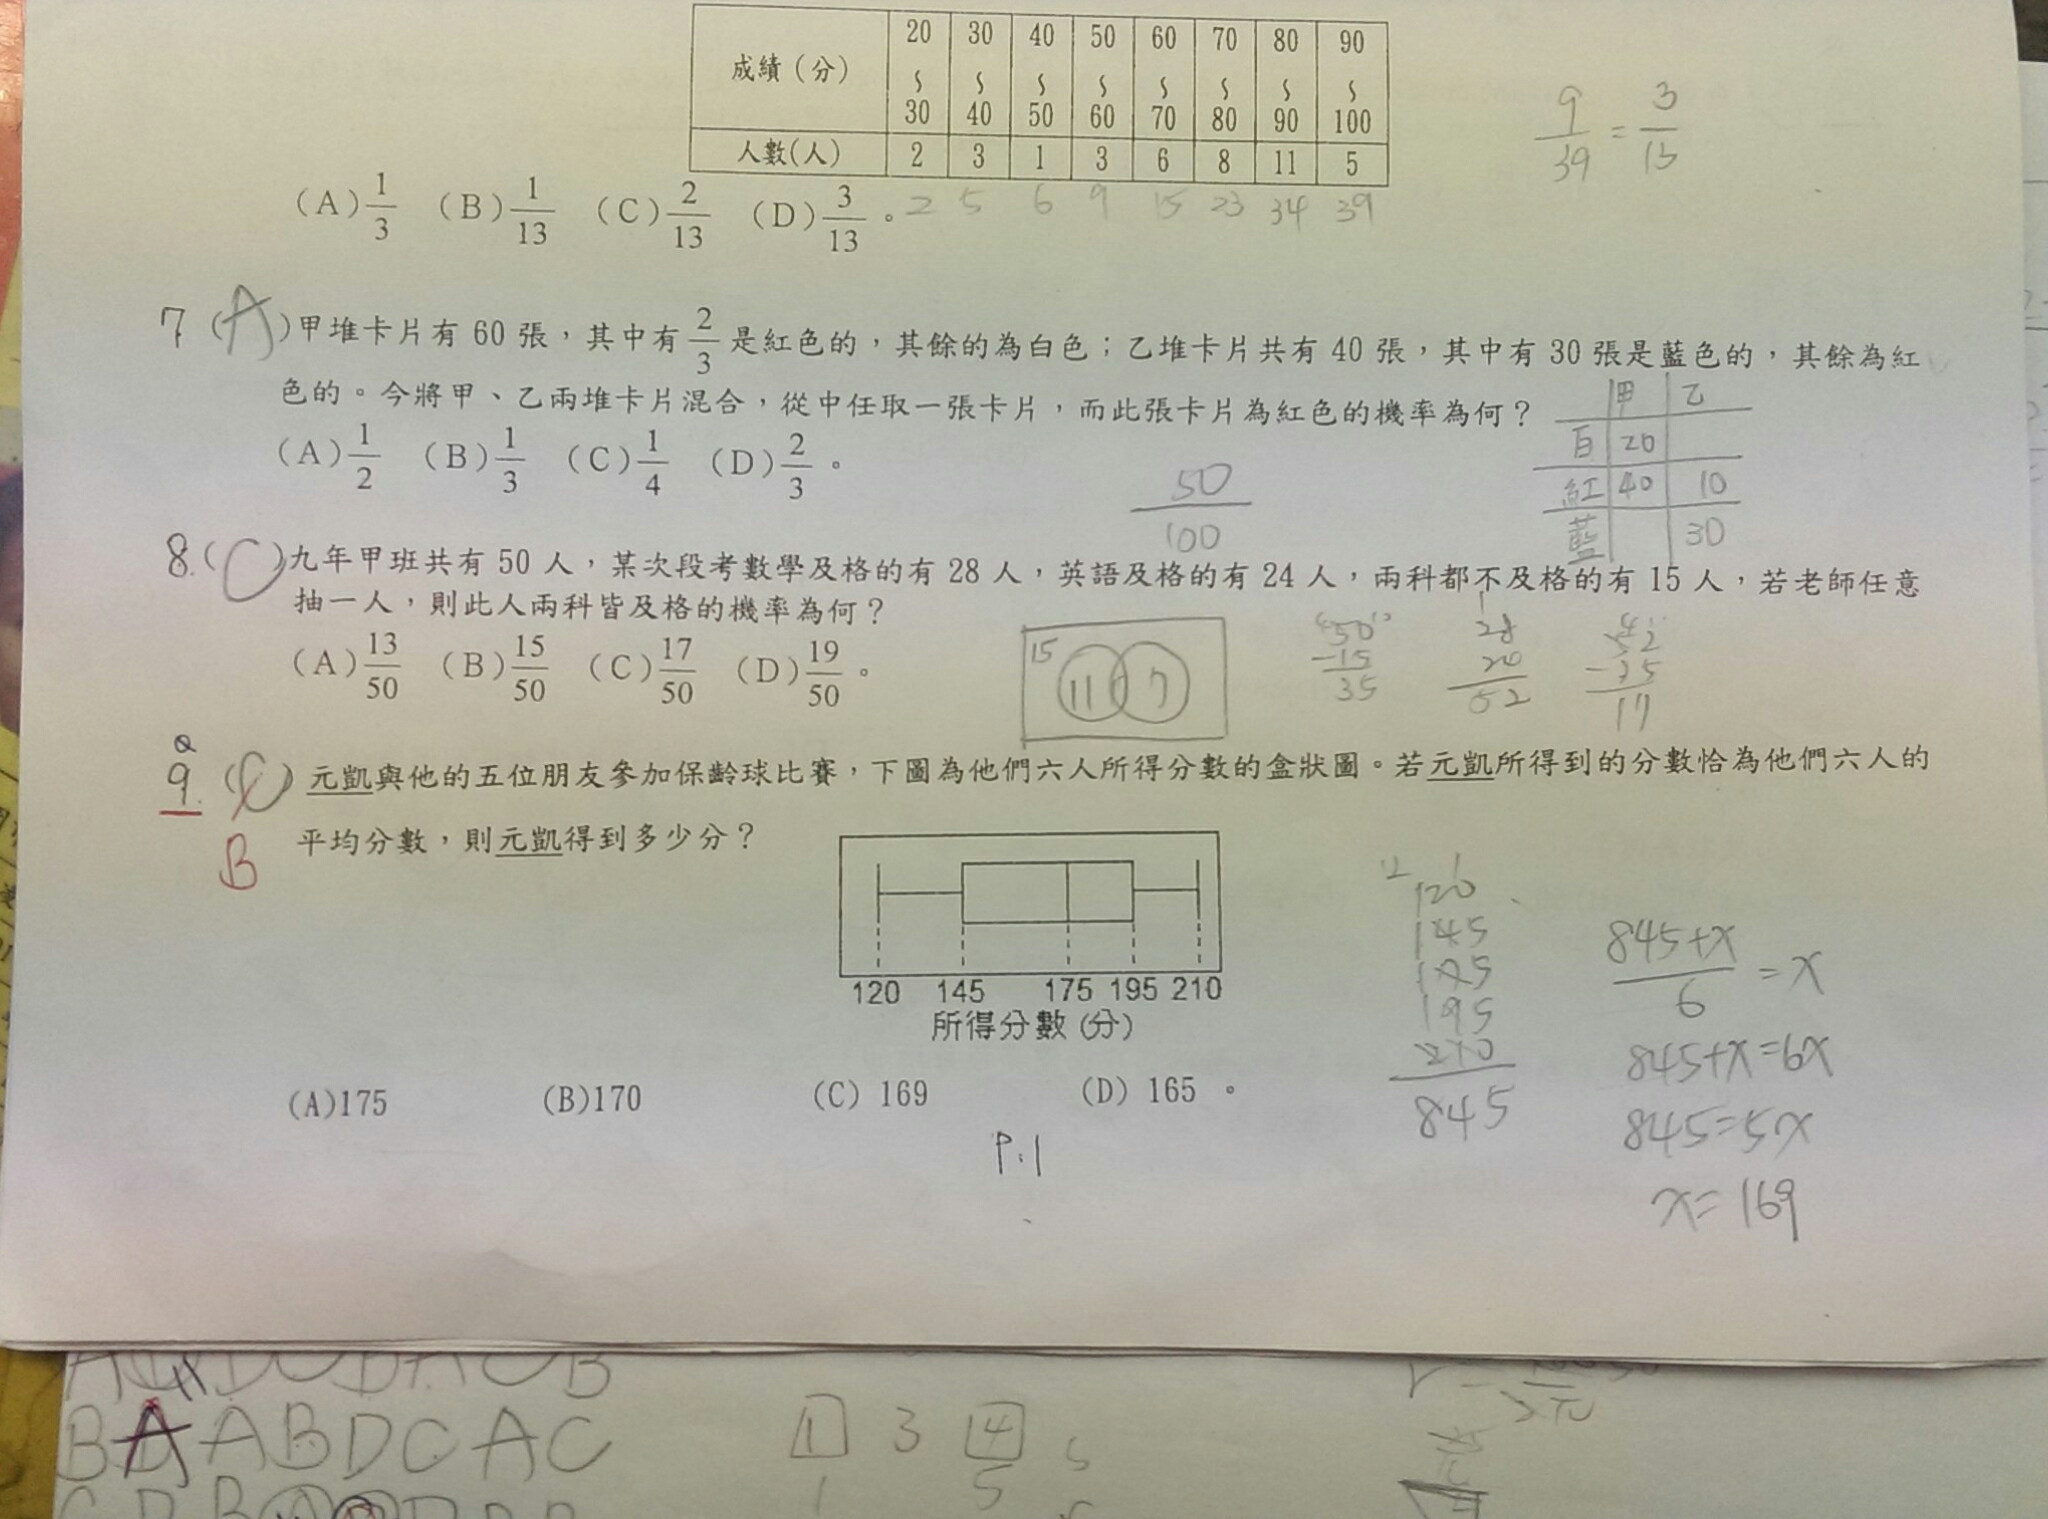 成績（分） 20～30 30～40 40～50 50～60 60～70 70～80 80～90 90～100
人數(人) 2 3 1 3 6 8 11 5
2 5 6 9 15 23 34 39
9/39 = 3/13
(A) 1/3 (B) 1/13 (C) 2/13 (D) 3/13 。
7 (A)甲堆卡片有 60 張，其中有 2/3 是紅色的，其餘的為白色；乙堆卡片共有 40 張，其中有 30 張是藍色的，其餘為紅
色的。今將甲、乙兩堆卡片混合，從中任取一張卡片，而此張卡片為紅色的機率為何？
(A) 1/2 (B) 1/3 (C) 1/4 (D) 2/3 。
50/100
甲 乙
白 20
紅 40 10
藍 30
8. (C)九年甲班共有 50 人，某次段考數學及格的有 28 人，英語及格的有 24 人，兩科都不及格的有 15 人，若老師任意
抽一人，則此人兩科皆及格的機率為何？
(A) 13/50 (B) 15/50 (C) 17/50 (D) 19/50 。
15 11 7
50
-15
35
28
24
52
52
-35
17
9. (C) 元凱與他的五位朋友參加保齡球比賽，下圖為他們六人所得分數的盒狀圖。若元凱所得到的分數恰為他們六人的
B
平均分數，則元凱得到多少分？
120 145 175 195 210
所得分數(分)
120
145
175
195
210
845
845+x/6 = x
845+x=6x
845=5x
x=169
(A)175 (B)170 (C) 169 (D) 165 。
P.1
B A A B D C A C
1 3 4 5
1 5